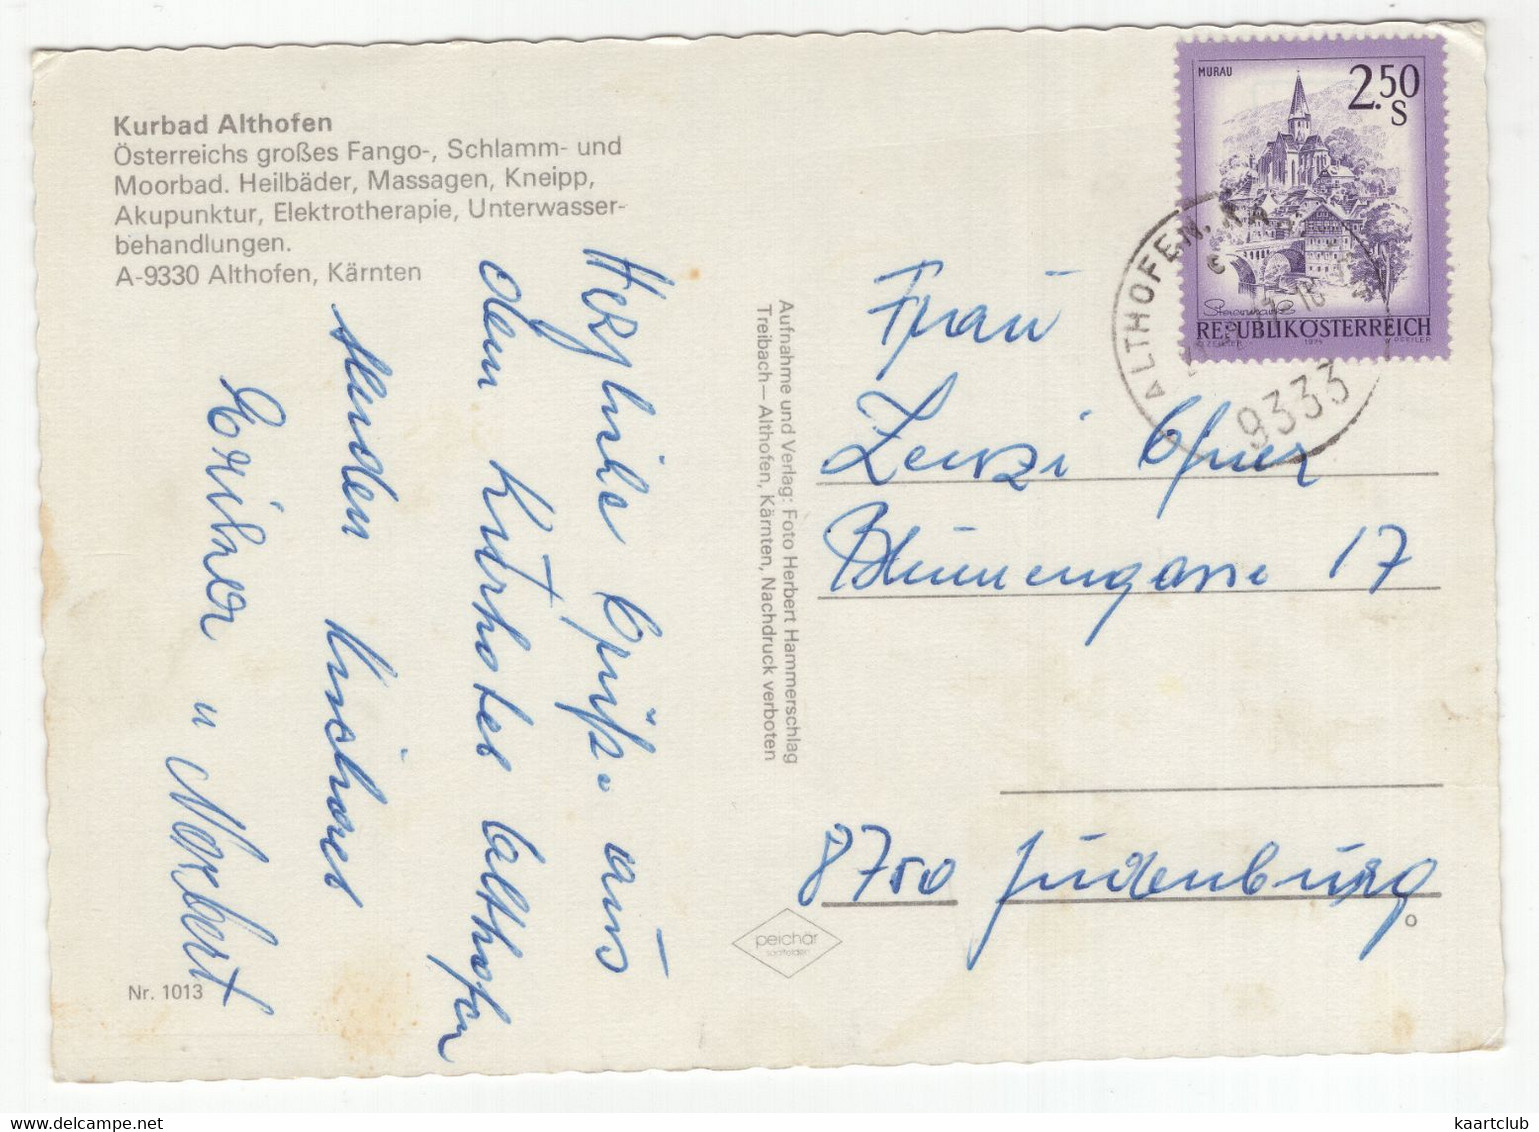 Kurbad Althofen
Österreichs großes Fango-, Schlamm- und
Moorbad. Heilbäder, Massagen, Kneipp,
Akupunktur, Elektrotherapie, Unterwasser-
behandlungen.
A-9330 Althofen, Kärnten
Herzliche Grüße aus
dem Kurhotel Althofen
senden
u Norbert
Nr. 1013
Aufnahme und Verlag: Foto Herbert Hammerschlag
Treibach—Althofen, Kärnten, Nachdruck verboten
peichär
saalfelden
MURAU
2.50
S
Steiermark
REPUBLIK ÖSTERREICH
ALTHOFEN, KÄ
9333
Frau
Zenzi
Blumengasse 17
8750 Judenburg
kaartclub
delcampe.net